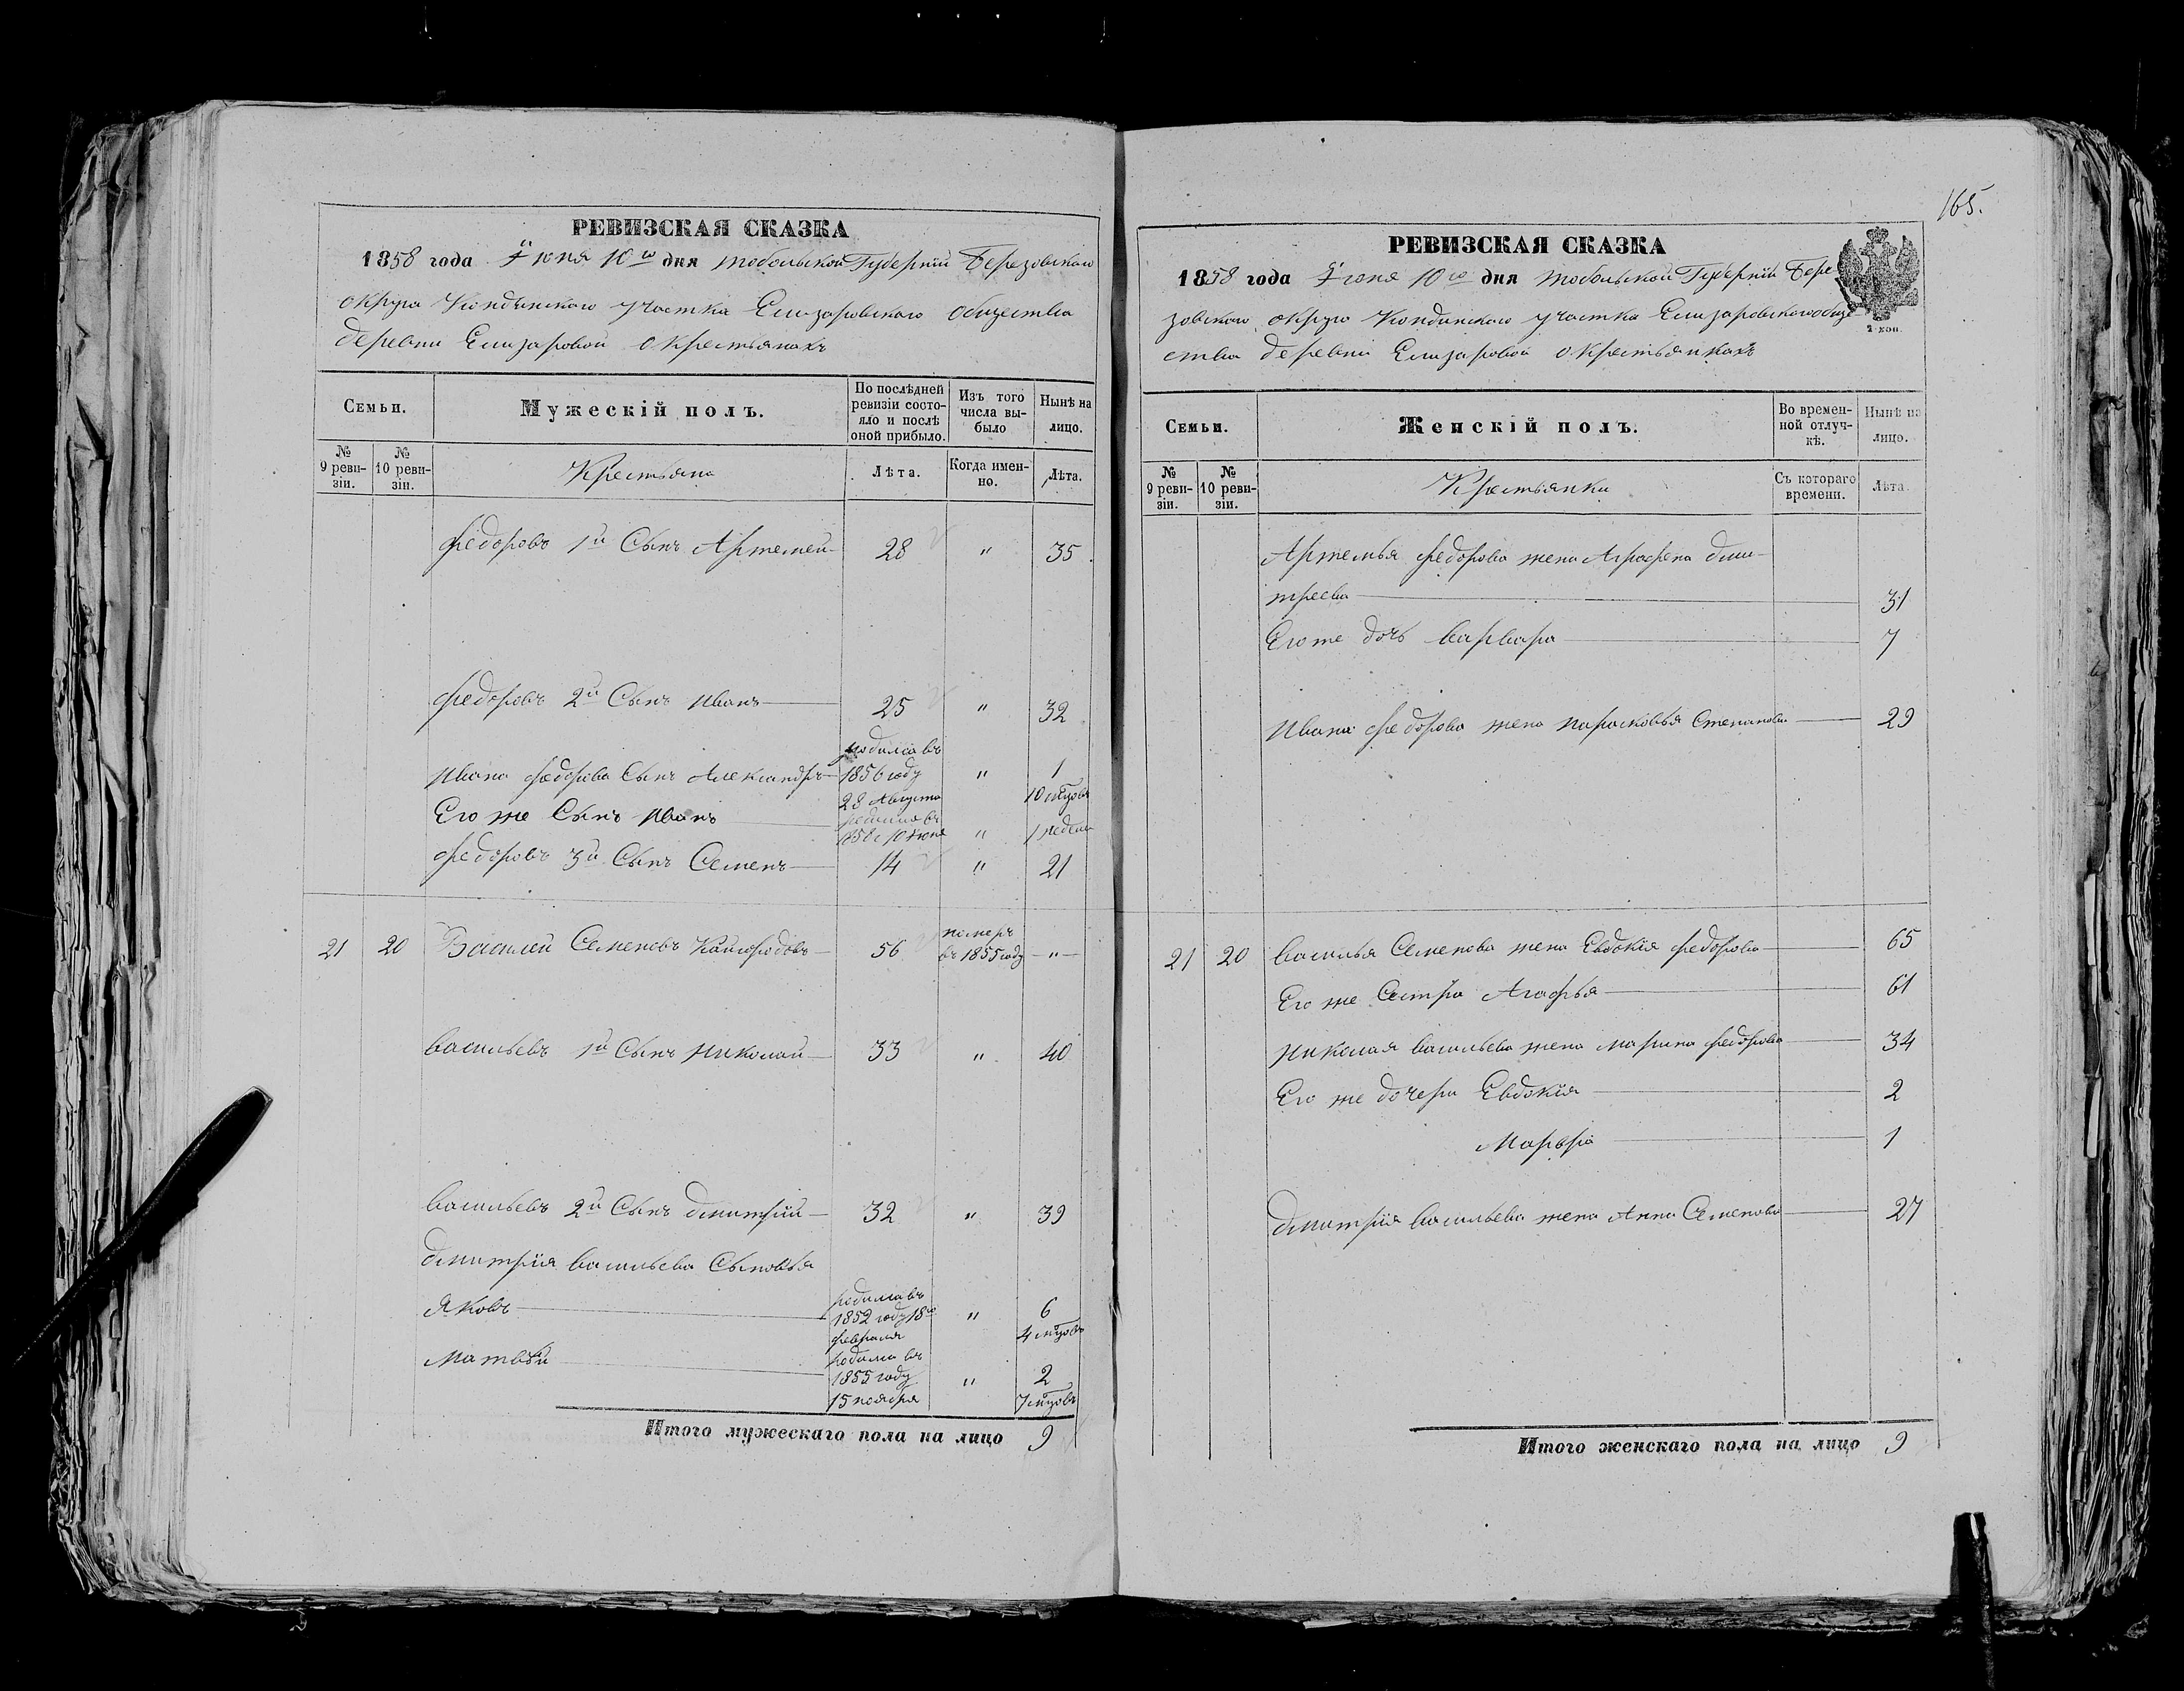 165.
РЕВИЗСКАЯ СКАЗКА
1858 года Іюня 10го дня Тобольской Губерніи Березовскаго
округа Кондинскаго участка Елизаровскаго общества
деревни Елизаровой о крестьянахъ
Семьи.
Мужескій полъ.
По послѣдней ревизіи состояло и послѣ оной прибыло.
Изъ того числа выбыло
Нынѣ на лицо.
№ 9 ревизіи.
№ 10 ревизіи.
Крестьяна
Лѣта.
Когда именно.
Лѣта.
Федоровъ 1й Сынъ Артемей 28 " 35
Федоровъ 2й Сынъ Иванъ 25 " 32
Ивана Федорова Сынъ Александръ родился въ 1856 году 28 Августа " 1 10 мѣцовъ
Его же Сынъ Иванъ родился въ 1858 г 10 Іюня " 1 недели
Федоровъ 3й Сынъ Семенъ 14 " 21
21 20 Василей Семеновъ Кайгородовъ 56 померъ въ 1855 году "
Васильевъ 1й Сынъ Николай 33 " 40
Васильевъ 2й Сынъ Дмитрій 32 " 39
Дмитрія Васильева Сыновья
Яковъ родился въ 1852 году 18го февраля " 6 4 мѣцовъ
Матвѣй родился въ 1855 году 15 ноября " 2 7 мѣцовъ
Итого мужескаго пола на лицо 9
РЕВИЗСКАЯ СКАЗКА
1858 года Іюня 10го дня Тобольской Губерніи Бере-
зовскаго округа Кондинскаго участка Елизаровскаго обще-
ства деревни Елизаровой о крестьянкахъ
2 коп.
Семьи.
Женскій полъ.
Во временной отлучкѣ.
Нынѣ на лицо.
№ 9 ревизіи.
№ 10 ревизіи.
Крестьянки
Съ котораго времени.
Лѣта.
Артемья Федорова жена Аграфена Дми-
треева 31
Его же дочь Варвара 7
Ивана Федорова жена Парасковья Степанова 29
21 20 Василья Семенова жена Евдокія Федорова 65
Его же Сестра Агафья 61
Николая Васильева жена Марина Федорова 34
Его же дочери Евдокія 2
Марѳа 1
Дмитрія Васильева жена Анна Семенова 27
Итого женскаго пола на лицо 9